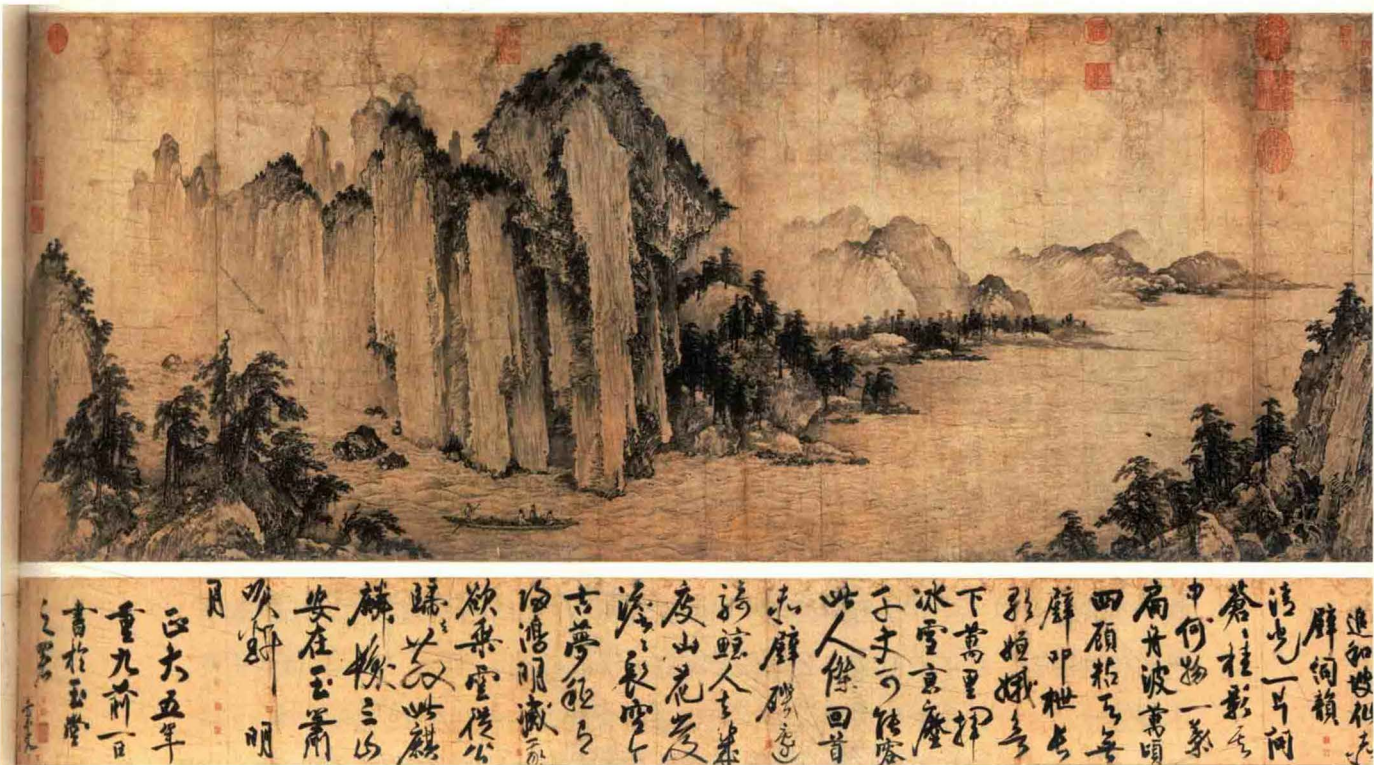 追和坡仙赤
壁詞韻
清光一片問
蒼〻桂影其
中何物一葉
扁舟波萬頃
四顧粘天無
壁叩枻長
歌姮娥欲
下萬里揮
冰雪京塵
千丈可能容
此人傑回首
赤壁磯邊
騎鯨人去幾
度山花發
澹〻長空今
古夢秖有
歸鴻明滅我
欲乘雲從公
歸去散此麒
麟髮三山
安在玉簫
吹斷明
月
正大五年
重九前一日
書於玉堂
之署